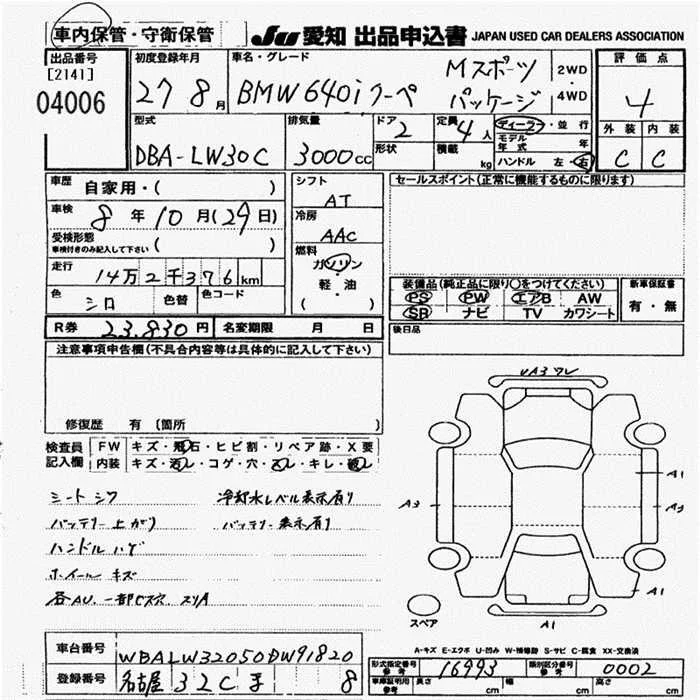 車内保管・守衛保管 JU 愛知 出品申込書 JAPAN USED CAR DEALERS ASSOCIATION
出品番号 初度登録年月 車名・グレード 評価点
[2141] 04006 27 8月 BMW 640i クーペ Mスポーツ パッケージ 2WD 4WD 4
型式 排気量 ドア 2 定員 4人 ディーラー・並行 外装 内装
DBA-LW30C 3000cc 形状 積載 kg モデル年式 年 ハンドル 左・右 C C
車歴 自家用・( ) シフト AT セールスポイント(正常に機能するものに限ります)
車検 8年10月(29日) 冷房 AAC
受検形態 車検付きのみ記入して下さい ( ) 燃料 ガソリン・軽油・( )
走行 14万2千376km
色 シロ 色替 色コード
装備品(純正品に限り○をつけてください) 新車保証書
PS PW エアB AW 有・無
SR ナビ TV カワシート
R券 23,830円 名変期限 月 日 後日品
注意事項申告欄(不具合内容等は具体的に記入して下さい)
修復歴 有 (箇所 )
検査員記入欄 FW キズ・飛石・ヒビ割・リペア跡・X要
内装 キズ・汚レ・コゲ・穴・スレ・キレ・破レ
シートシワ 冷却水レベル表示有り
バッテリー上がり バッテリー表示有り
ハンドルハゲ
ホイールキズ
各AU、一部C穴 スリA
UA3 ワレ
A1
A3
A1
スペア A1
A-キズ E-エクボ U-凹み W-補修跡 S-サビ C-腐食 XX-交換済
車台番号 WBALW32050DW91820
登録番号 名古屋 32C 8
形式指定番号 参考 16993 類別区分番号 参考 0002
車庫証明用 参考 長さ cm 幅 cm 高さ cm